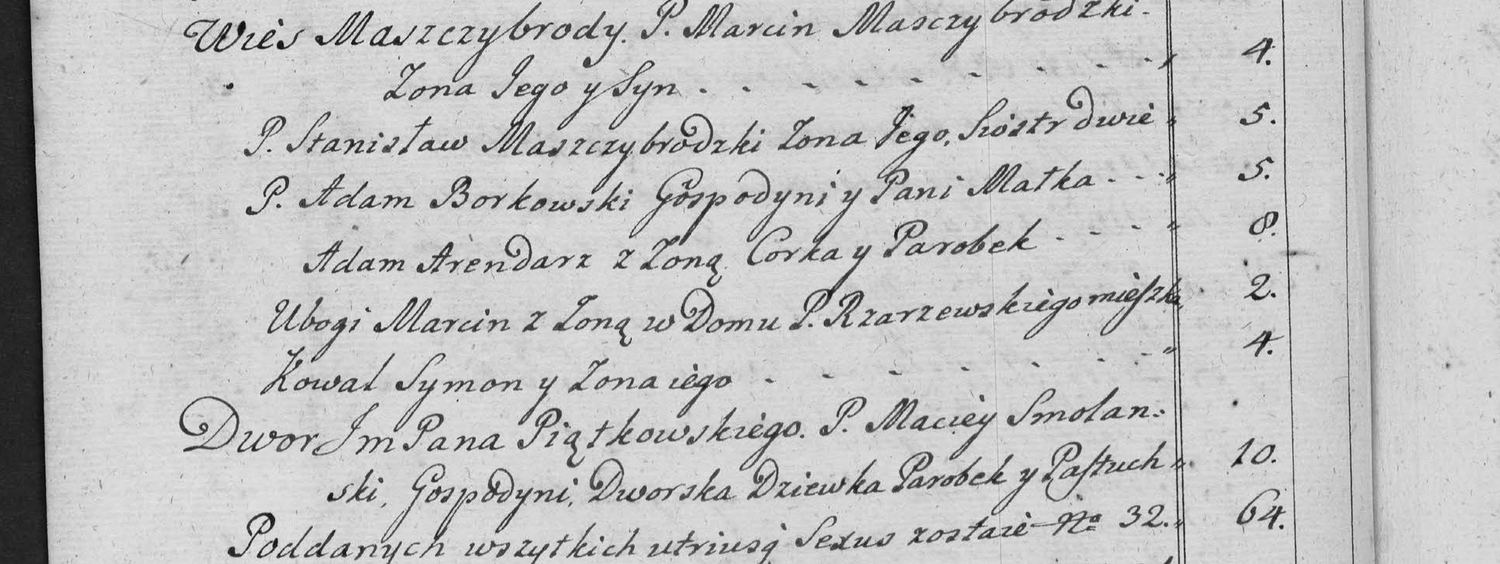 Wieś Maszczybrody. P. Marcin Masczybrodzki.
Zona Jego y Syn . . . . . . . . . „ 4.
P. Stanisław Maszczybrodzki Zona Jego, Siostr dwie „ 5.
P. Adam Borkowski Gospodyni y Pani Matka . . . „ 5.
Adam Arendarz z Zoną Corka y Parobek . . . . „ 8.
Ubogi Marcin z Zoną w Domu P. Rzarzewskiego mieszka „ 2.
Kowal Symon y Zona iego . . . . . . . „ 4.
Dwor Jm Pana Piątkowskiego. P. Maciey Smolan-
ski, Gospodyni, Dworska Dziewka Parobek y Pastuch „ 10.
Poddanych wszytkich utriusq Sexus zostaie No 32. „ 64.